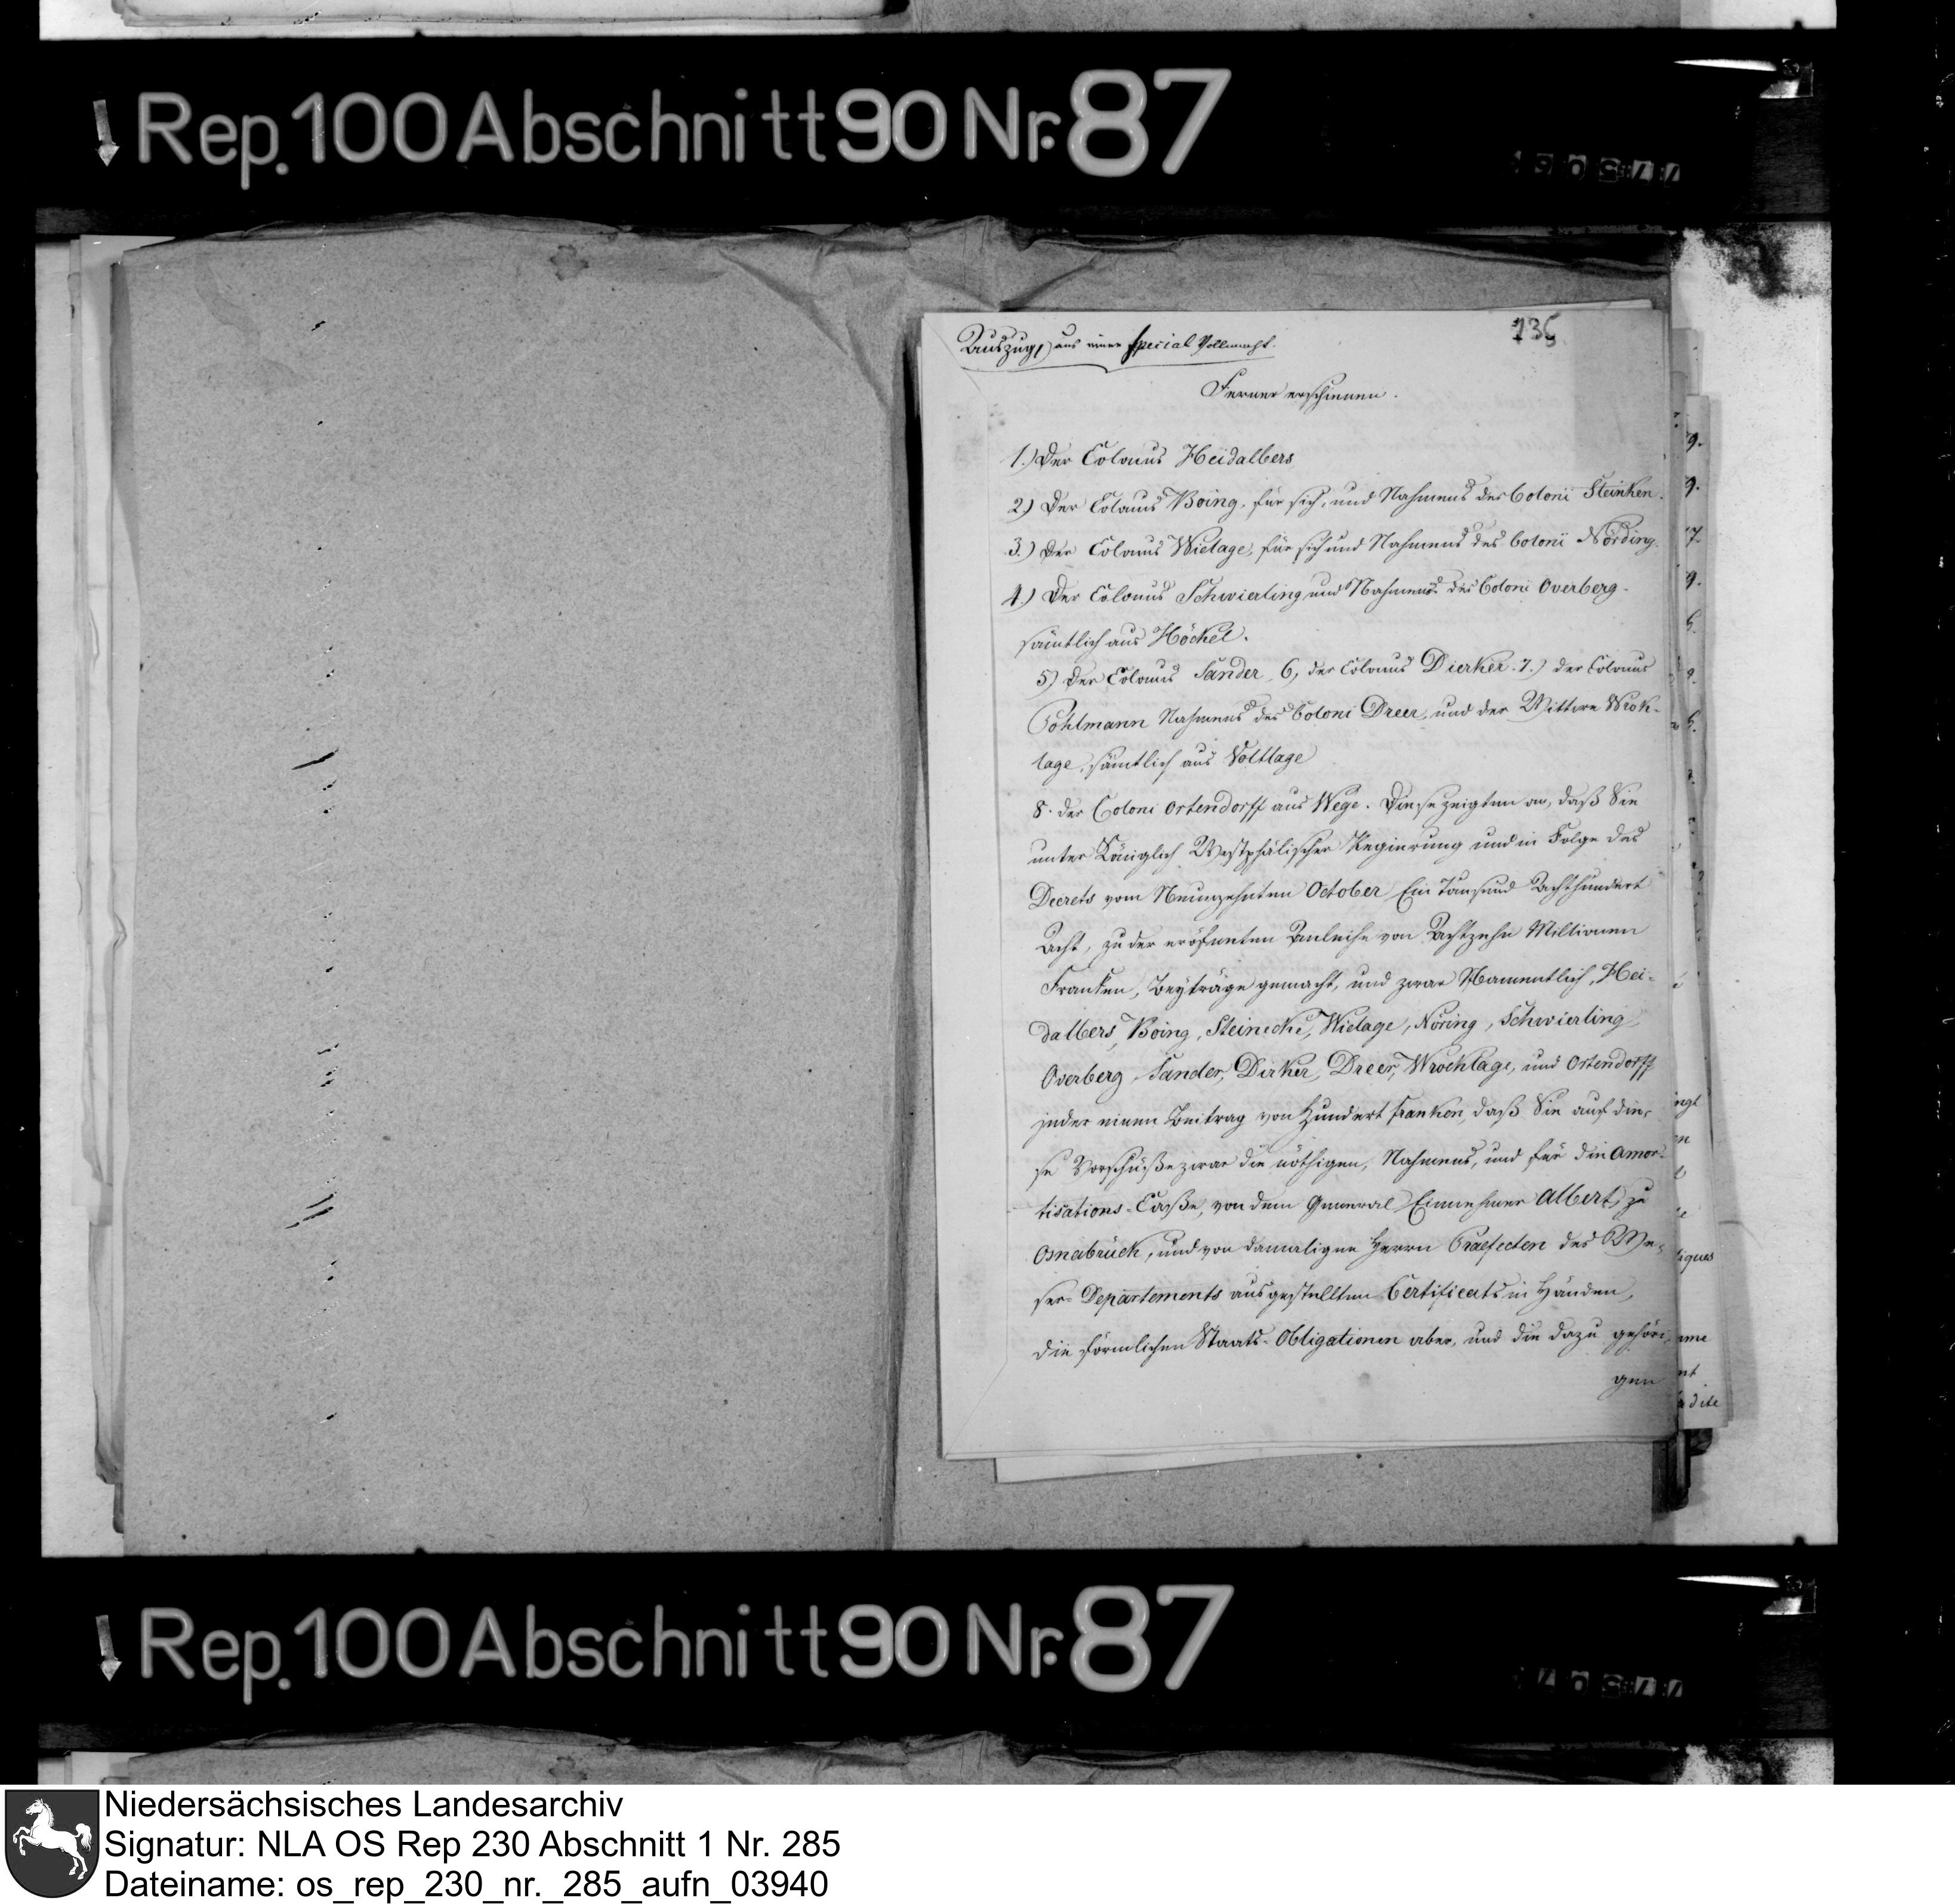 Rep. 100 Abschnitt 90 Nr. 87
136
Auszug, aus einer special Vollmacht.
Ferner erschienen.
1.) Der Colonus Heidalbers
2.) Der Colonus Boing, für sich, und Nahmens des Coloni Steinken.
3.) Der Colonus Wielage, für sich und Nahmens des Coloni Nörding.
4.) Der Colonus Schwierling und Nahmens des Coloni Overberg.
sämtlich aus Höckel.
5) Der Colonus Sander 6, der Colonus Dierker. 7.) der Colonus
Pohlmann Nahmens des Coloni Dreer, und der Wittwe Wrok-
lage, sämtlich aus Voltlage
8. der Coloni Ortendorff aus Wege. Diese zeigten an, daß Sie
unter Königlich Westphälischer Regierung und in Folge des
Decrets vom Neunzehnten October Ein Tausend Achthundert
Acht, zu der eröfneten Anleihe von Achtzehn Millionen
Franken, Beyträge gemacht, und zwar Namentlich, Hei-
dalbers, Boing, Steinecke, Wielage, Nöring, Schwierling,
Overberg, Sander, Dirker, Dreer, Wrocklage, und Ortendorff
jeder einen Beitrag von Hundert Franken, daß Sie auf die-
se Vorschüße zwar die nöthigen, Nahmens, und für die Amor-
tisations-Caße, von dem General Einnehmer Albert, zu
Osnabrück, und von damaligen Herrn Praefecten des We-
ser-Departements ausgestellten Certificats in Händen,
die förmlichen Staats-Obligationen aber, und die dazu gehöri-
gen
Rep. 100 Abschnitt 90 Nr. 87
Niedersächsisches Landesarchiv
Signatur: NLA OS Rep 230 Abschnitt 1 Nr. 285
Dateiname: os_rep_230_nr._285_aufn_03940